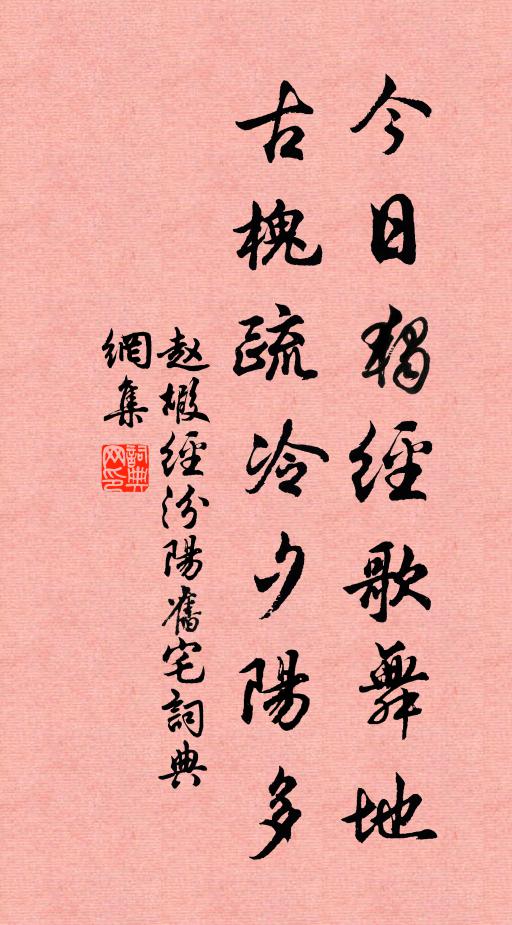 今日獨經歌舞地
古槐疏冷夕陽多
赵嘏經汾陽舊宅詞典
網集
詞典
网印